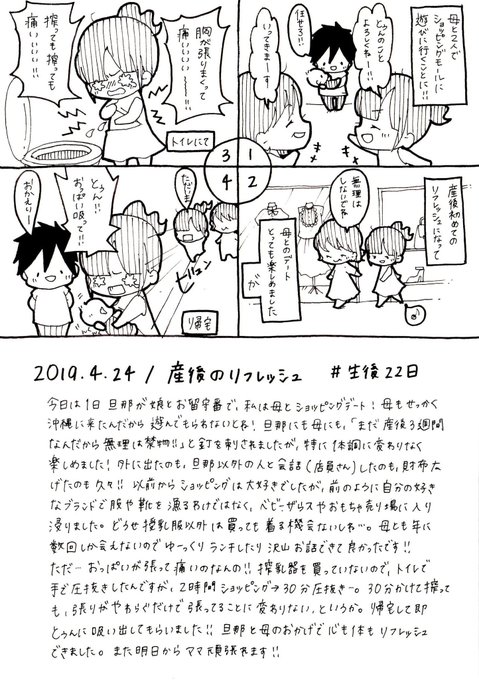 母と2人で
ショッピングモールに
遊びに行くことに!!
とぅんのこと
よろしくねー!!
任せろ!!
いってきまーす
1
2
3
4
産後初めての
リフレッシュになって
無理は
しないでね
母とのデート
とっても楽しめました
が
胸が張りまくって
痛いーーー!!!
搾っても搾っても
痛いいい!!!
トイレにて
ただいま
とぅん!!!
おっぱい吸って!!!
おかえり
ビュン
帰宅
2019.4.24/産後のリフレッシュ #生後22日
今日は1日旦那が娘とお留守番で、私は母とショッピングデート!母もせっかく
沖縄に来たんだから遊んでもらわないとね!旦那にも母にも、「まだ産後3週間
なんだから無理は禁物!!」と釘を刺されましたが、特に体調に変わりなく
楽しめました!外に出たのも、旦那以外の人と会話(店員さん)したのも、財布広
げたのも久々!!以前からショッピングは大好きでしたが、前のように自分の好き
なブランドで服や靴を漁るわけではなく、ベビーザらスやおもちゃ売り場に入り
浸りました。どうせ授乳服以外は買っても着る機会ないしね…。母とも年に
数回しか会えないのでゆーっくりランチしたり沢山お話できて良かったです!!
ただ…おっぱいが張って痛いのなんの!!搾乳器を買っていないので、トイレで
手で圧抜きしたんですが、2時間ショッピング→30分圧抜き…。30分かけて搾って
も、張りがやわらぐだけで張ってることに変わりない、というか。帰宅して即
とぅんに吸い出してもらいました!!旦那と母のおかげで心も体もリフレッシュ
できました。また明日からママ頑張れます!!